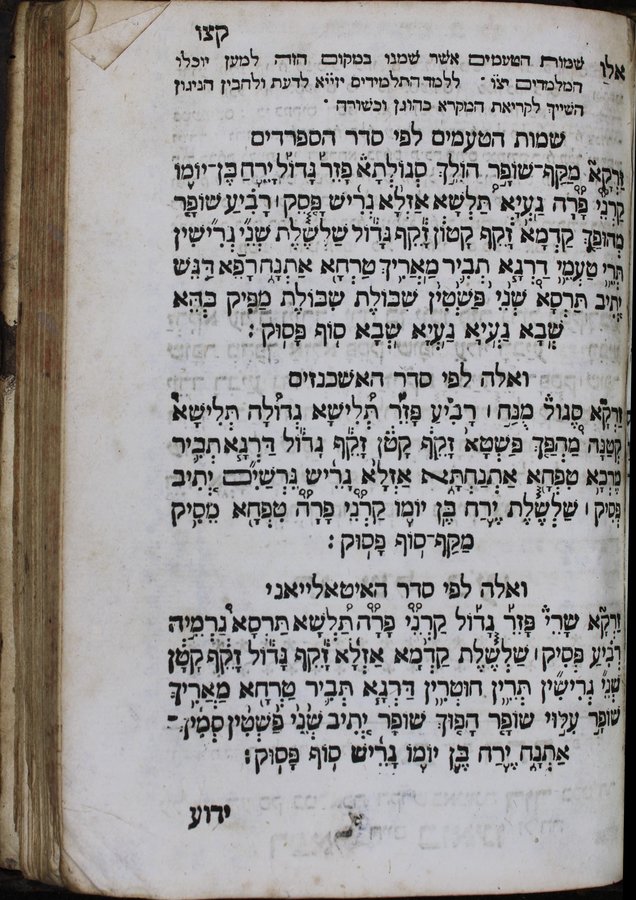 קצו
אלו שמות הטעמים אשר שמנו במקום הזה למען יוכלו
המלמדים יצו׳ ללמד התלמידים יזיי׳א לדעת ולהבין הניגון
השייך לקריאת המקרא כהוגן וכשורה׃
שמות הטעמים לפי סדר הספרדים
זַרְקָא מַקַּף־שׁוֹפָר הוֹלֵךְ סְגוֹלְתָּא פָּזֵר גָּדוֹל יָרֵחַ בֶּן־יוֹמוֹ
קַרְנֵי פָרָה גַּעְיָא תַּלְשָׁא אַזְלָא גְּרִישׁ פָּסֵק׀ רְבִיעַ שׁוֹפָר
מְהוּפָּךְ קַדְמָא זָקֵף קָטוֹן זָקֵף גָּדוֹל שַׁלְשֶׁלֶת שְׁנֵי גְרִישִׁין
תְּרֵי טַעֲמֵי דַּרְגָּא תְּבִיר מַאֲרִיךְ טַרְחָא אַתְנָח רָפֵא דָּגֵשׁ
יְתִיב תַּרְסָא שְׁנֵי פַּשְׁטִין שִׁבּוֹלֶת שִׂבּוֹלֶת מַפִּיק בְּהֵא
שְׁבָא גַּעְיָא גַּעְיָא שְׁבָא סוֹף פָּסוּק׃
ואלה לפי סדר האשכנזים
זַרְקָא סֶגוֹל מֻנַּח׀ רְבִיעַ פָּזֵר תְּלִישָׁא גְדוֹלָה תְּלִישָׁא
קְטַנָּה מַהְפַּךְ פַּשְׁטָא זָקֵף קָטֹן זָקֵף גָּדוֹל דַּרְגָּא תְּבִיר
מֵרְכָא טִפְחָא אֶתְנַחְתָּא אַזְלָא גֵּרִישׁ גֵּרְשַׁיִם יְתִיב
פְּסִיק׀ שַׁלְשֶׁלֶת יָרֵחַ בֶּן יוֹמוֹ קַרְנֵי פָרָה טִפְחָא מֵסִיק
מַקַּף־סוֹף פָּסוּק׃
ואלה לפי סדר האיטאלייאני
זַרְקָא שָׁרֵי פָּזֵר גָּדוֹל קַרְנֵי פָרָה תַּלְשָׁא תַּרְסָא גַּרְמֵיהּ
רְבִיעַ פְּסִיק׀ שַׁלְשֶׁלֶת קַדְמָא אַזְלָא זָקֵף גָּדוֹל זָקֵף קָטֹן
שְׁנֵי גְרִישִׁין תְּרֵין חוּטְרִין דַּרְגָּא תְּבִיר טַרְחָא מַאֲרִיךְ
שׁוֹפָר עִלּוּי שׁוֹפָר הָפוּךְ שׁוֹפָר יְתִיב שְׁנֵי פַּשְׁטִין סְמִין־
אַתְנָח יָרֵחַ בֶּן יוֹמוֹ גָּרִישׁ סוֹף פָּסוּק׃
ידוע